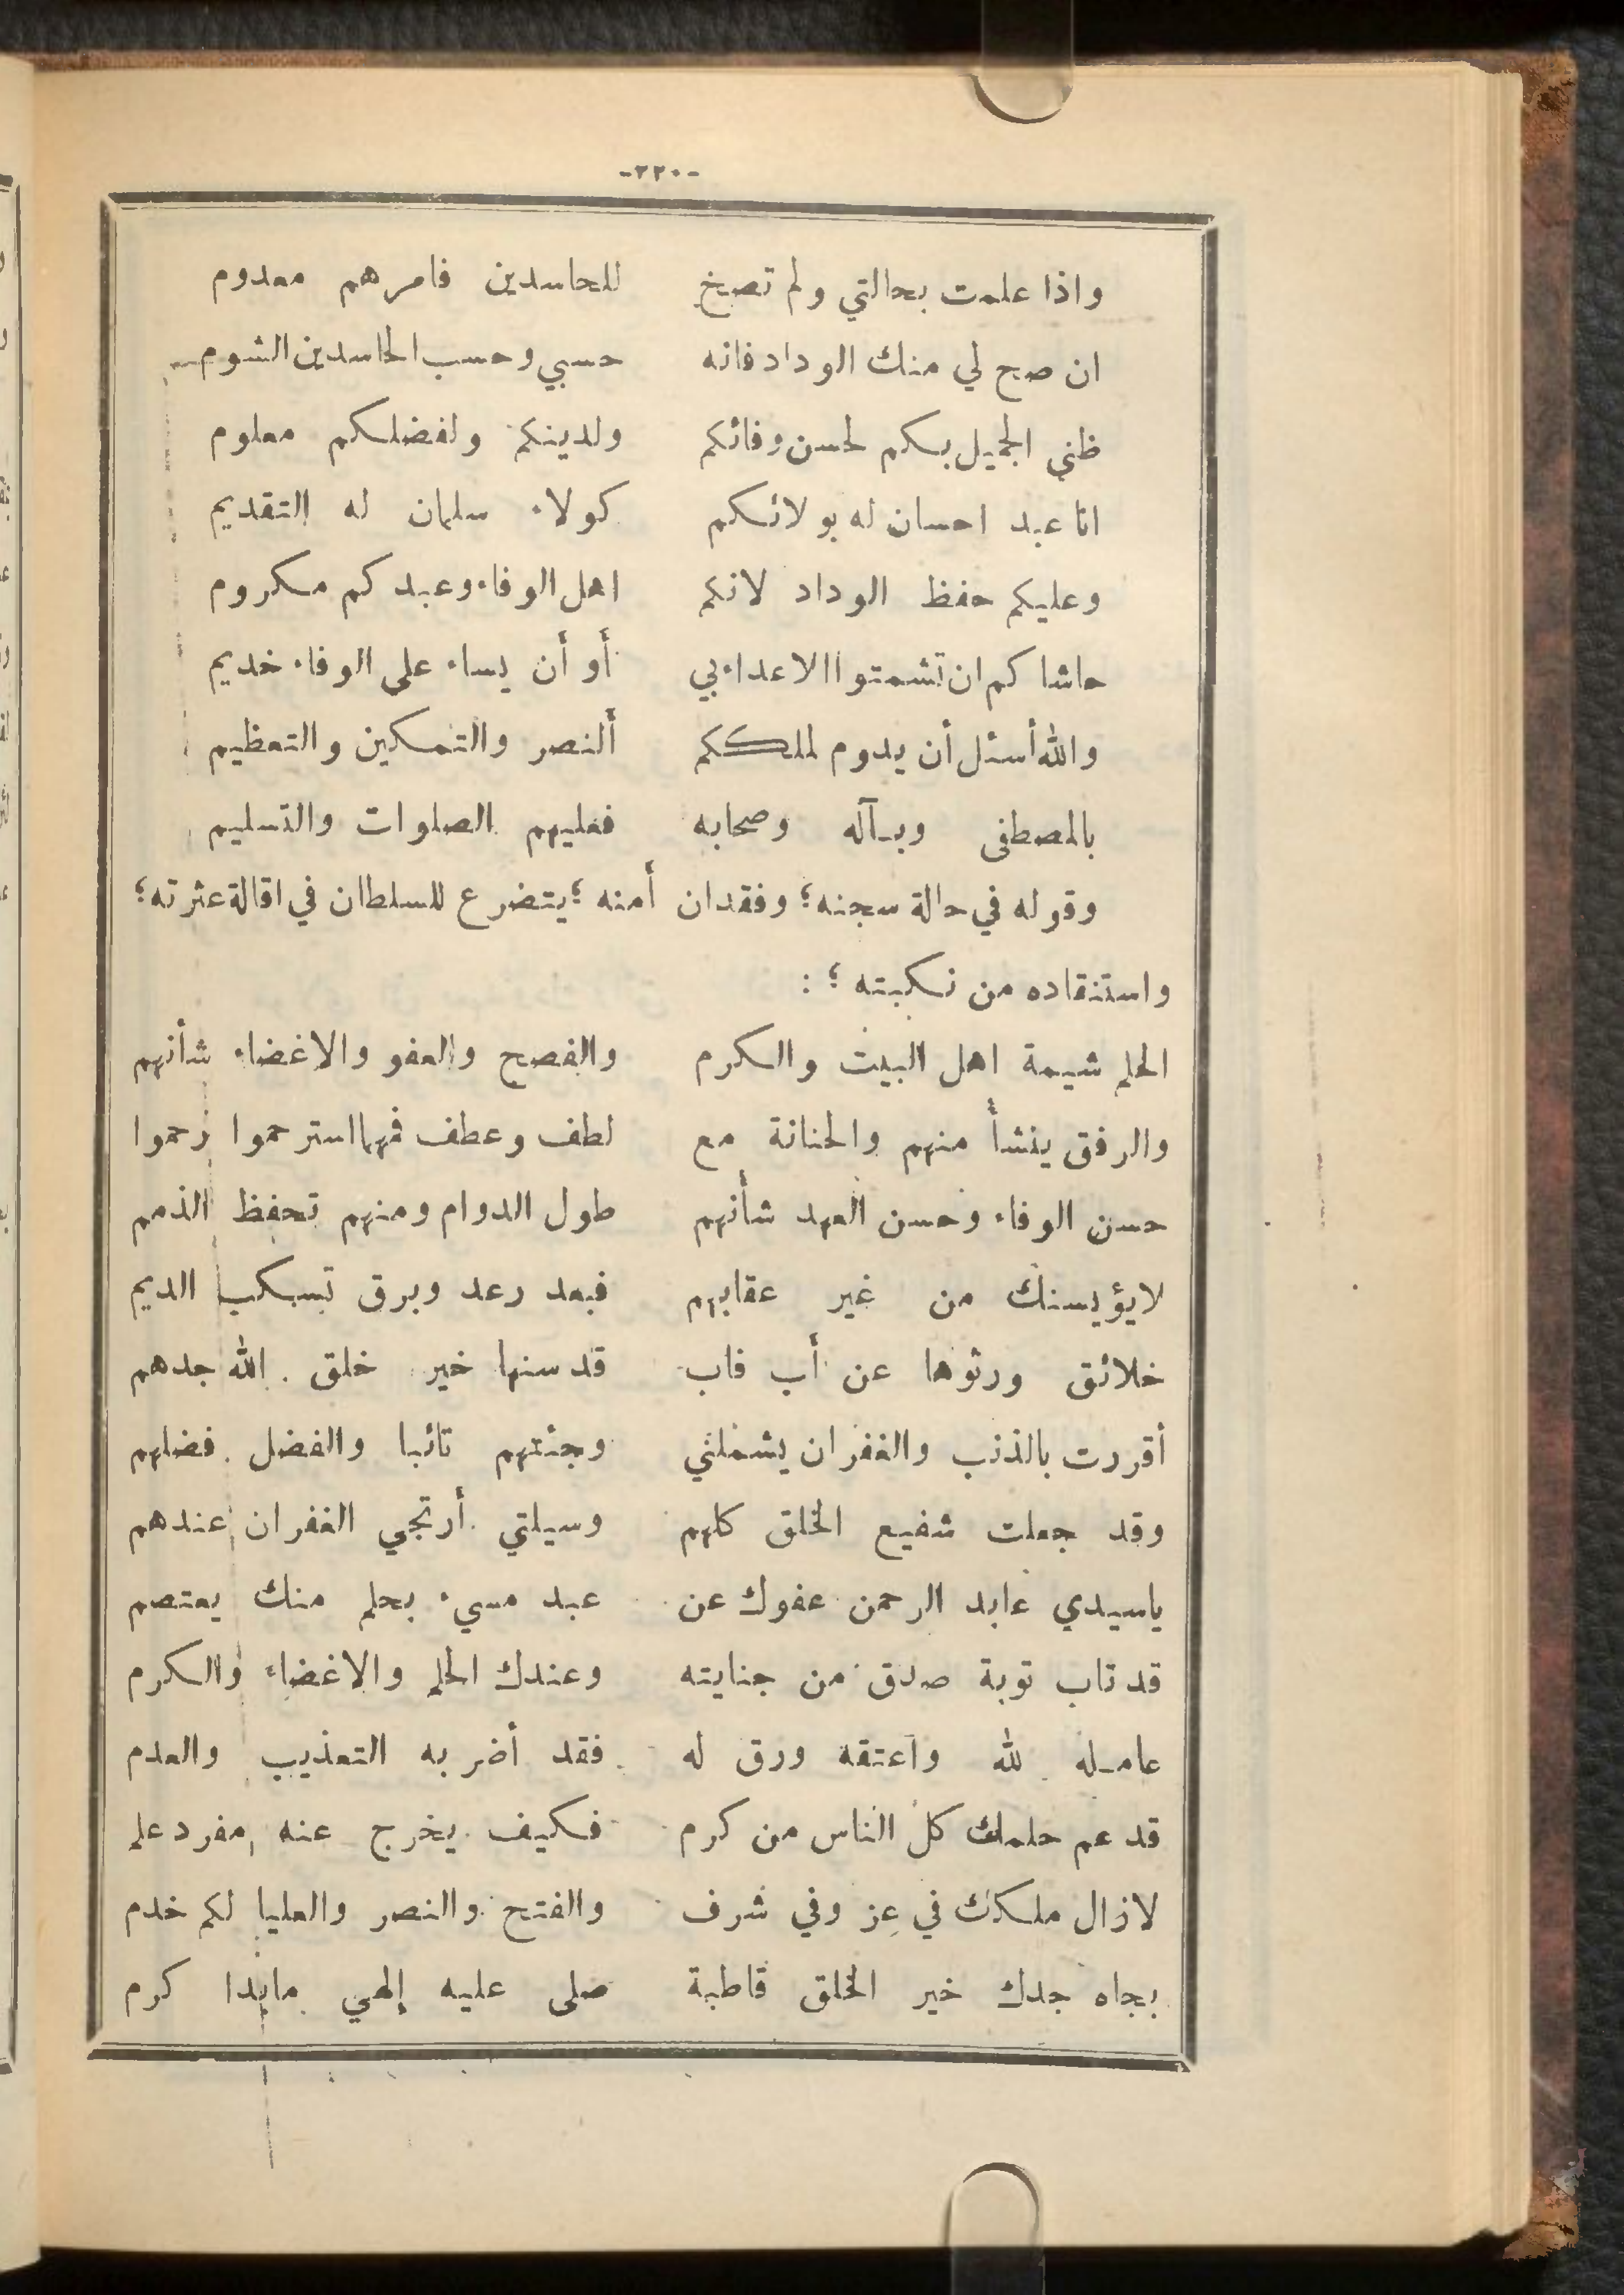 -٢٢٠-
واذا علمت بحالتي ولم تصخ للحاسدين فامرهم معدوم
ان صح لي منك الوداد فانه حسبي وحسب الحاسدين الشوم
ظني الجميل بكم لحسن وفائكم ولدينكم ولفضلكم معلوم
انا عبد احسان له بولائكم كولاء سلمان له التقديم
وعليكم حفظ الوداد لانكم اهل الوفاء وعبدكم مكروم
حاشاكم ان تشمتوا الاعداء بي أو أن يساء على الوفاء خديم
والله أسئل أن يدوم لملككم ألنصر والتمكين والتعظيم
بالمصطفى وبآله وصحابه فعليهم الصلوات والتسليم
وقوله في حالة سجنه؛ وفقدان أمنه؛ يتضرع للسلطان في اقالة عثرته؛
واستنقاده من نكبته؛ :
الحلم شيمة اهل البيت والكرم والفصح والعفو والاغضاء شأنهم
والرفق ينشأ منهم والحنانة مع لطف وعطف فمهما استرحموا رحموا
حسن الوفاء وحسن العهد شأنهم طول الدوام ومنهم تحفظ الذمم
لايؤيسنك من غير عقابهم فبعد رعد وبرق تسكب الديم
خلائق ورثوها عن أب فاب قد سنها خير خلق الله جدهم
أقررت بالذنب والغفران يشملني وجئتهم تائبا والفضل فضلهم
وقد جعلت شفيع الخلق كلهم وسيلتي أرتجي الغفران عندهم
ياسيدي عابد الرحمن عفوك عن عبد مسيء بحلم منك يعتصم
قد تاب توبة صدق من جنايته وعندك الحلم والاغضاء والكرم
عامله لله واعتقه ورق له فقد أضر به التعذيب والعدم
قد عم حلمك كل الناس من كرم فكيف يخرج عنه مفرد علم
لازال ملكك في عز وفي شرف والفتح والنصر والعليا لكم خدم
بجاه جدك خير الخلق قاطبة صلى عليه إلهي مابدا كرم